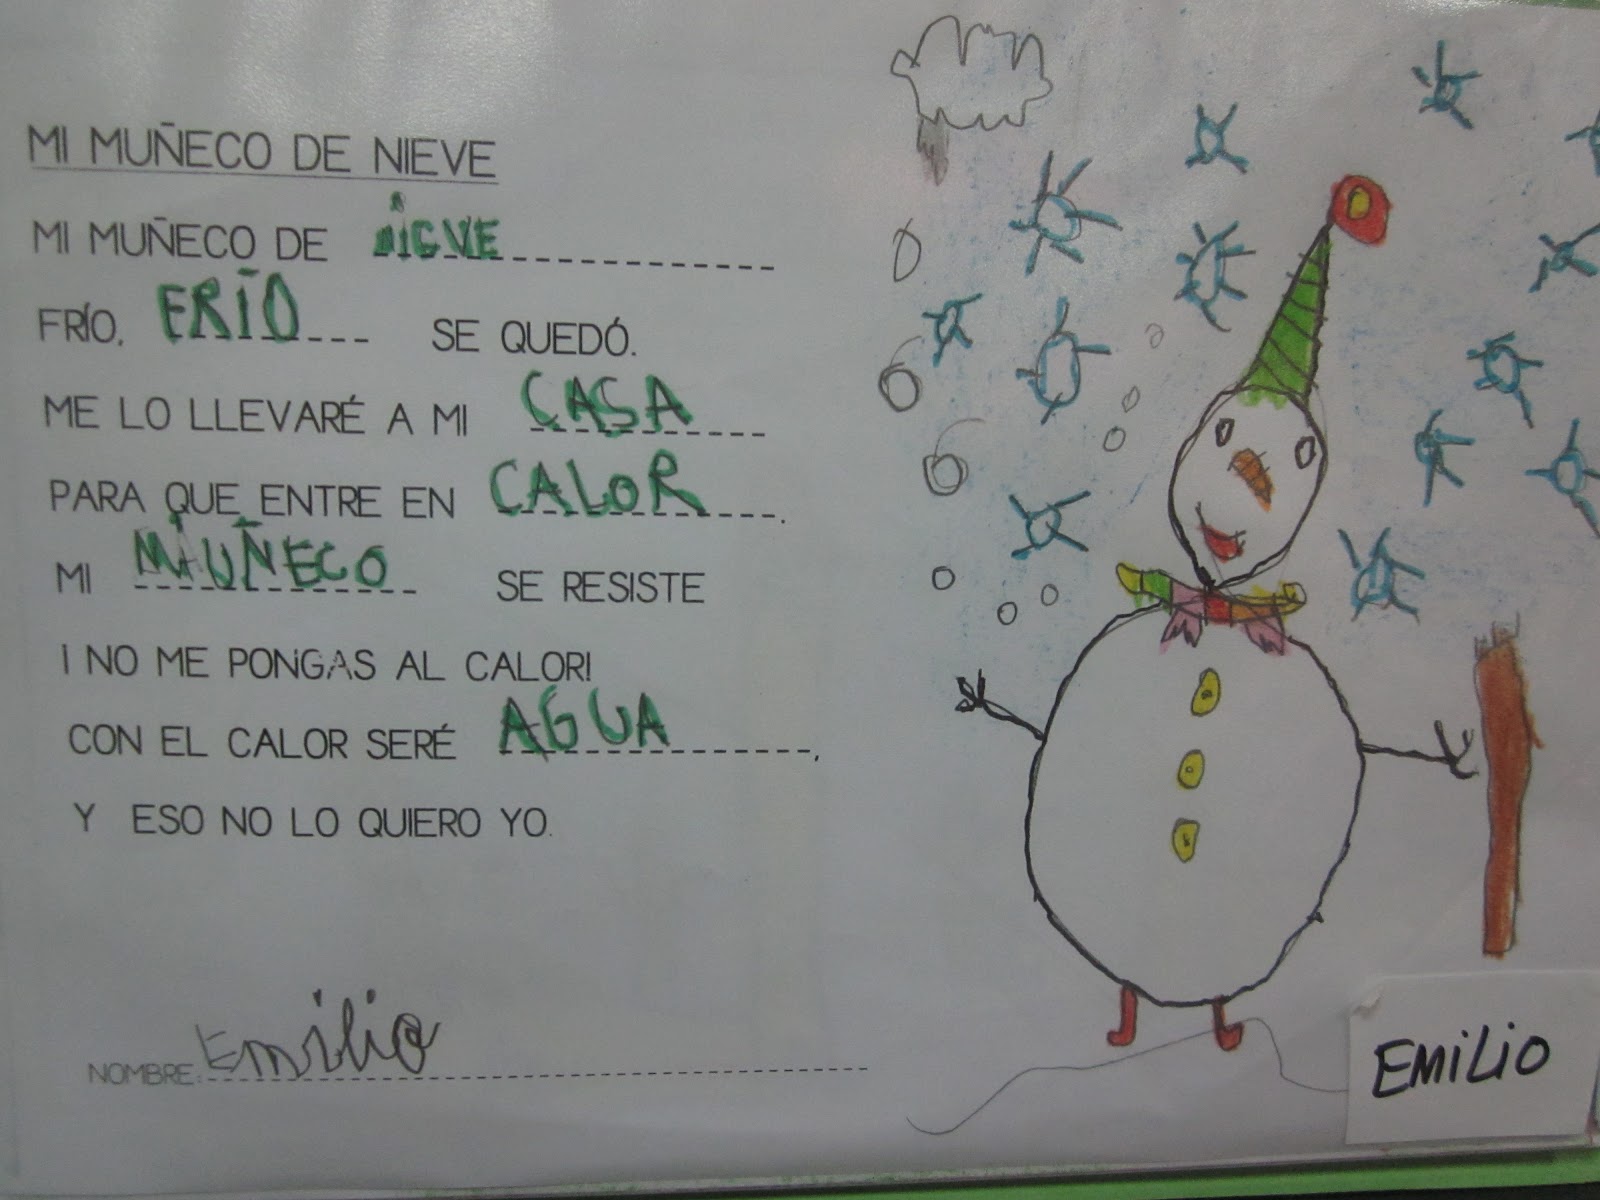 MI MUÑECO DE NIEVE
MI MUÑECO DE NIEVE
FRÍO, FRÍO SE QUEDÓ.
ME LO LLEVARÉ A MI CASA
PARA QUE ENTRE EN CALOR.
MI MUÑECO SE RESISTE
¡ NO ME PONGAS AL CALOR!
CON EL CALOR SERÉ AGUA,
Y ESO NO LO QUIERO YO.
NOMBRE: Emilio
EMILIO